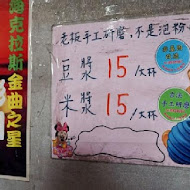 克拉斯金曲之星
老板手工研磨,不是泡粉
豆漿 15/大杯
米漿 15/大杯